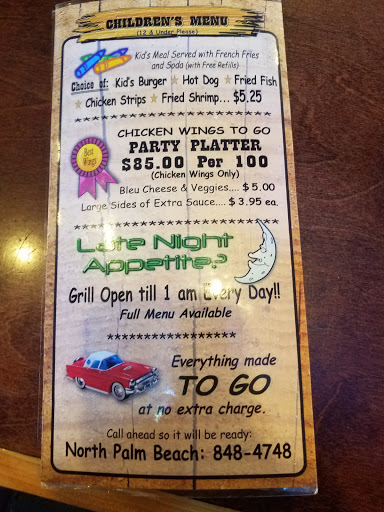 CHILDREN'S MENU
(12 & Under Please)
Kid's Meal Served with French Fries
and Soda (with Free Refills)
Choice of: Kid's Burger ★ Hot Dog ★ Fried Fish
★ Chicken Strips ★ Fried Shrimp... $5.25
********************
Best
Wings
CHICKEN WINGS TO GO
PARTY PLATTER
$85.00 Per 100
(Chicken Wings Only)
Bleu Cheese & Veggies.... $ 5.00
Large Sides of Extra Sauce.... $ 3.95 ea.
********************
Late Night
Appetite?
Grill Open till 1 am Every Day!!
Full Menu Available
***************
Everything made
TO GO
at no extra charge.
Call ahead so it will be ready:
North Palm Beach: 848-4748